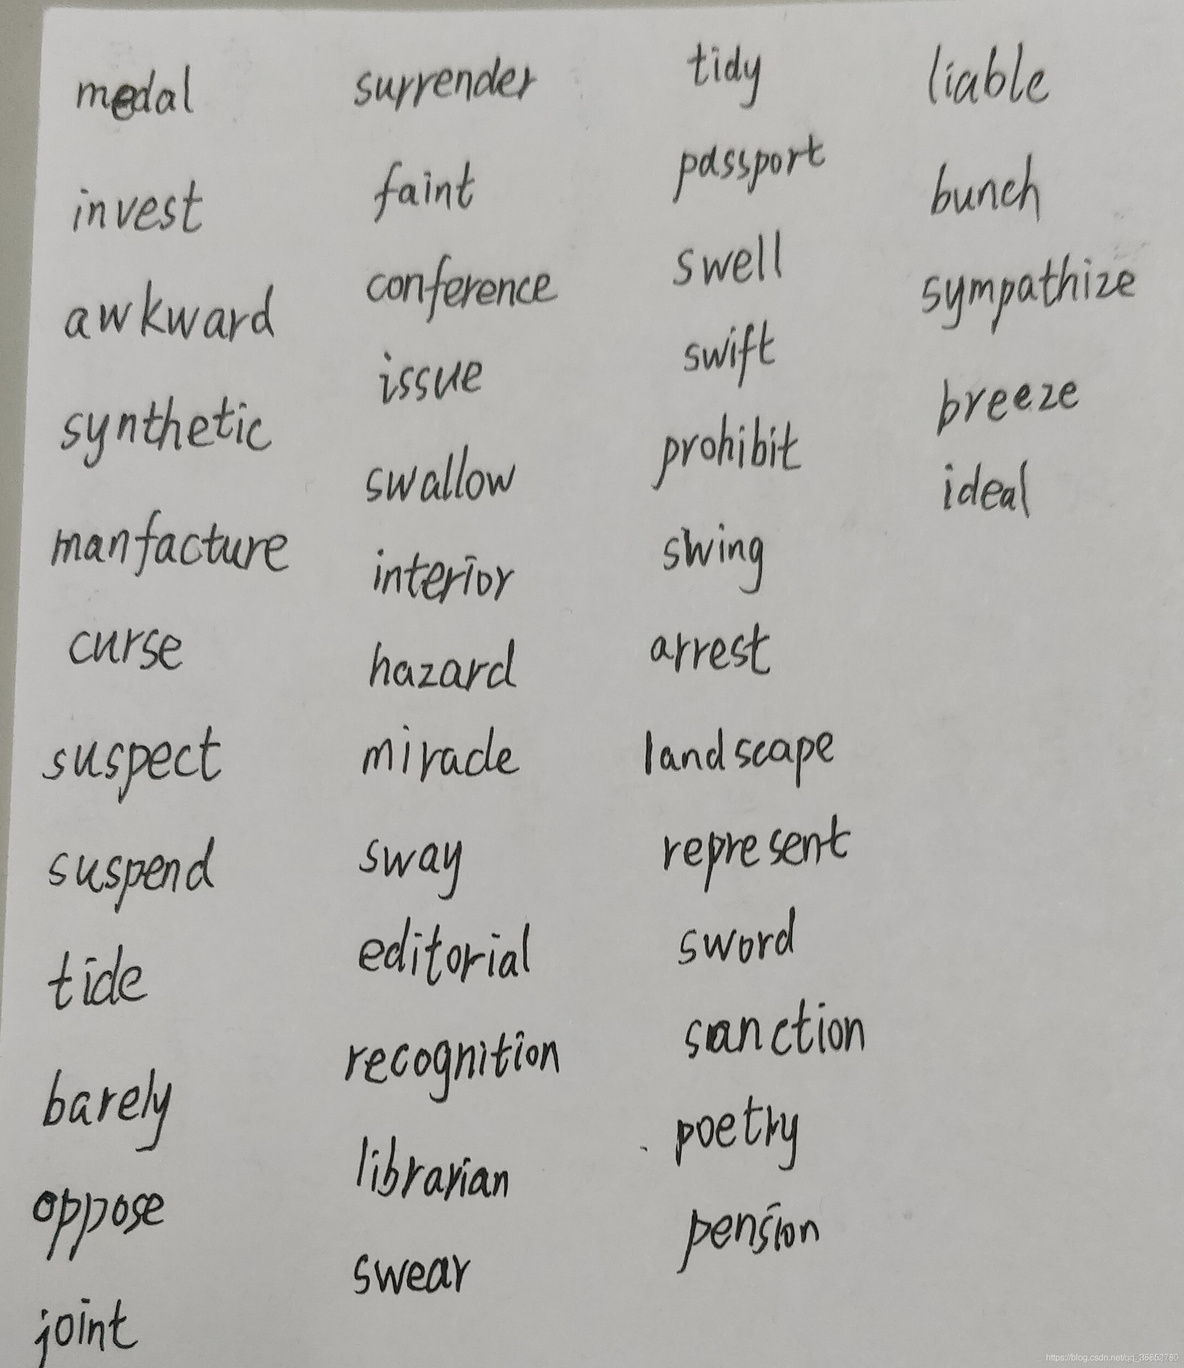 medal
invest
awkward
synthetic
manfacture
curse
suspect
suspend
tide
barely
oppose
joint
surrender
faint
conference
issue
swallow
interior
hazard
miracle
sway
editorial
recognition
librarian
swear
tidy
passport
swell
swift
prohibit
swing
arrest
landscape
represent
sword
sanction
poetry
pension
liable
bunch
sympathize
breeze
ideal